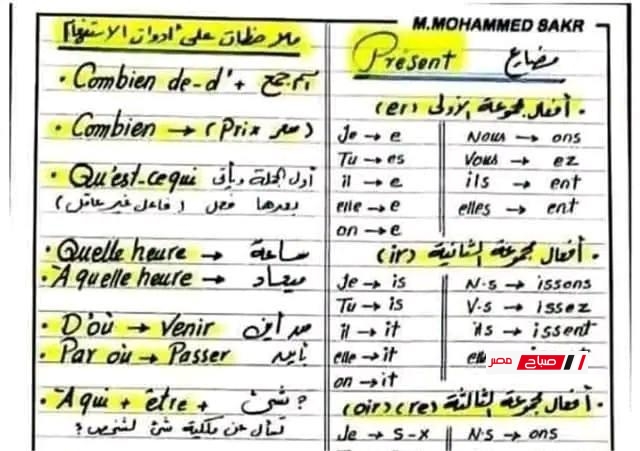 M.MOHAMMED SAKR
ملاحظات على أدوات الاستفهام
• Combien de-d' + اسم جمع
• Combien → (Prix سعر)
• Qu'est-ce qui أول الجملة ويأتى
بعدها فعل (فاعل غير عاقل)
• Quelle heure → ساعة
• A quelle heure → ميعاد
• D'où → Venir من أين
• Par où → Passer بأين
• A qui + être + شئ ?
تسأل عن ملكية شئ لشخص ?
Présent مضارع
• أفعال مجموعة الأولى (er)
Je → e Nous → ons
Tu → es Vous → ez
il → e ils → ent
elle → e elles → ent
on → e
• أفعال مجموعة الثانية (ir)
Je → is N.s → issons
Tu → is V.s → issez
il → it ils → issent
elle → it
on → it
صباح مصر
• أفعال مجموعة الثالثة (re) (oir)
Je → s-x N.s → ons